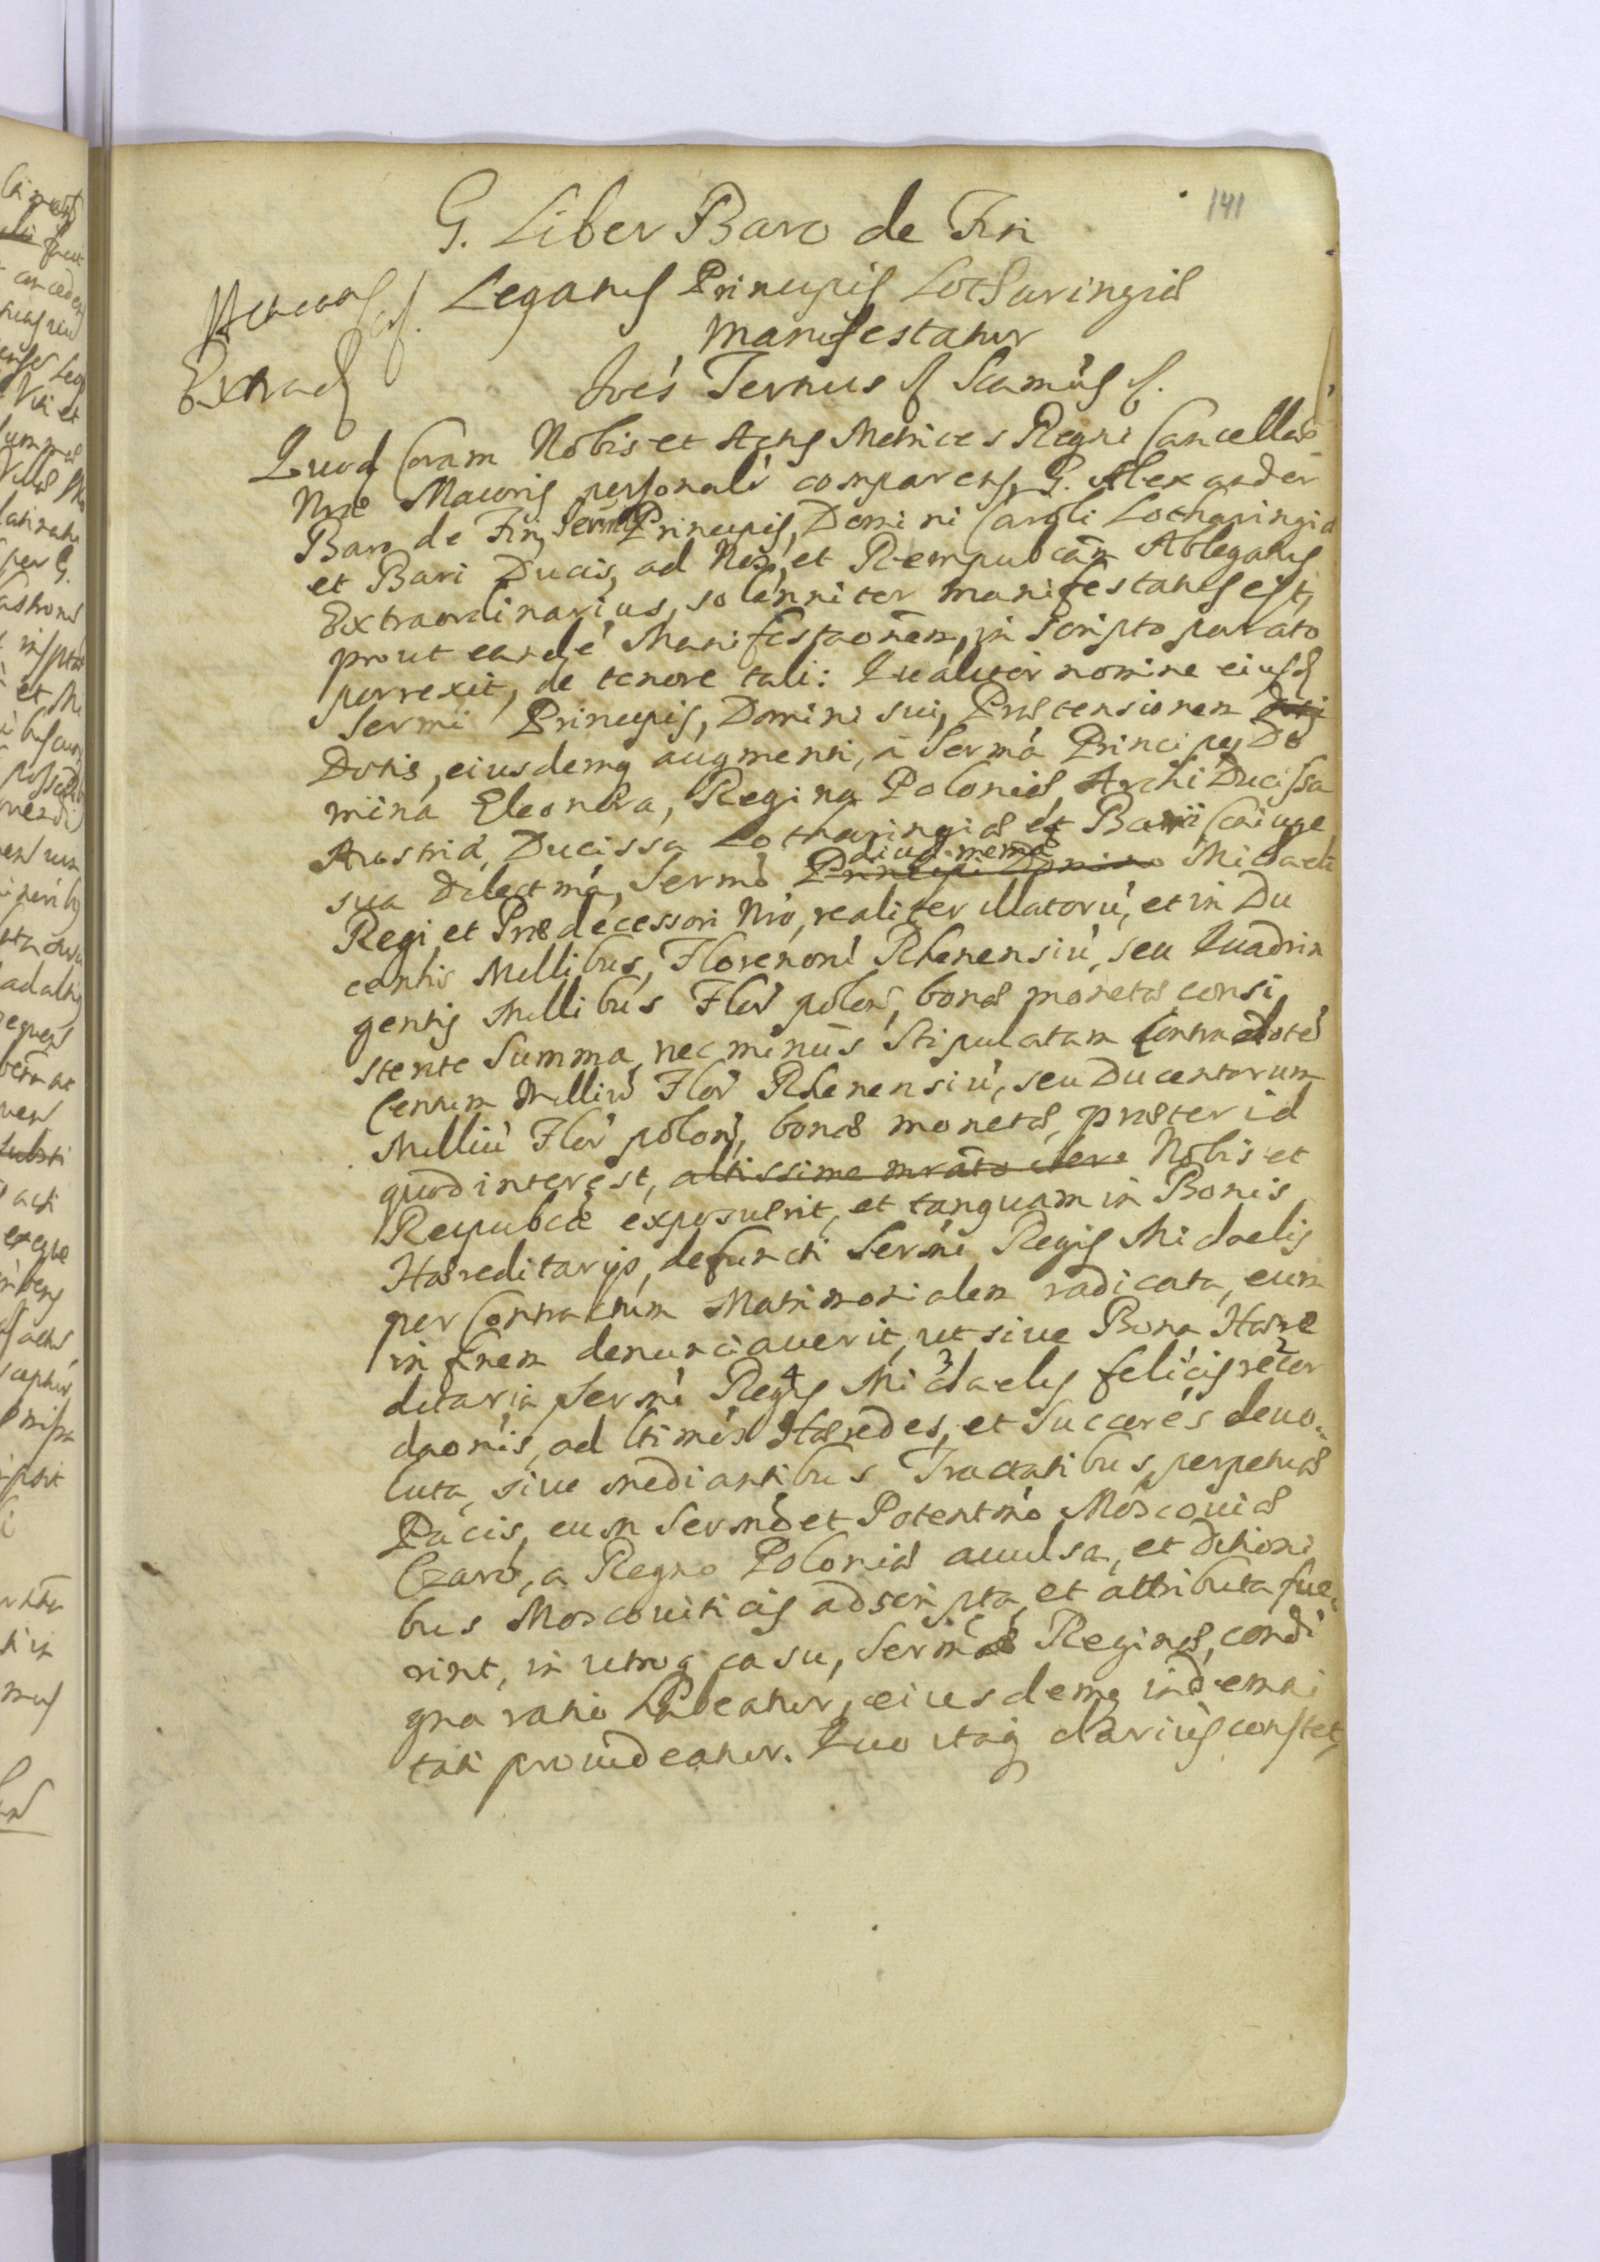 141
G. Liber Baro de Fin
Legatus Principis Lotharingiæ
Manifestatur
Extrad
Joes Tertius f Scamus f.
Quod Coram Nobis et Actis Metrices Regni Cancellæ
Nræ Maioris personalr comparens G. Alexander
Baro de Fin, Sermi Principis, Domini Caroli Lotharingiæ
et Bari Ducis, ad Nos, et Rempubcam Ablegatus
Extraordinarius, solenniter manifestatus est,
prout eandē Manifestaonem, in scripto parato
porrexit, de tenore tali: Qualiter nomine eiusd
Sermi Principis, Domini sui, Prætensionem
Dotis, eiusdemq augmenti, à Serma Principe, Do
mina Eleonora, Regina Poloniæ, Archi Ducissa
Austriæ, Ducissa Lotharingiæ et Barii Coniuge
sua Dilectma, Sermo Principi Domino diuæ memæ Michaeli
Regi et Prædecessori Nro, realiter illatorū, et in Du
centis Millibus, Florenorū Rhenensiū, seu Quadrin
gentis Millibus Flor polon, bonæ monetæ consi
stente Summa, nec minus Stipulatam Contradotē
Centum Milliū Flor Rhenensiū, seu Ducentorum
Milliū Flor polon, bonæ monetæ, præter id
quod interest, altissime Nobis et
Reipubcæ exposuerit, et tanquam in Bonis
Hæreditarijs, defuncti Sermi Regis Michaelis
per Contractum Matrimonialem radicata, eum
in finem denunciauerit, ut siue Bona Hære
ditaria Sermi Regis Michaelis felicis recor
daonis, ad ltimos Hæredes, et Succores deuo-
luta, siue mediantibus Tractatibus perpetuæ
Pacis, cum Sermo et Potentmo Moscouiæ
Czaro, a Regno Poloniæ auulsa, et Ditioni
bus Moscouiticis adscripta, et attributa fue-
rint, in utroq casu, Sermæ Reginæ, condi
gna ratio habeatur, eiusdemq indemni
tati prouideatur. Quo itaq clarius constet,